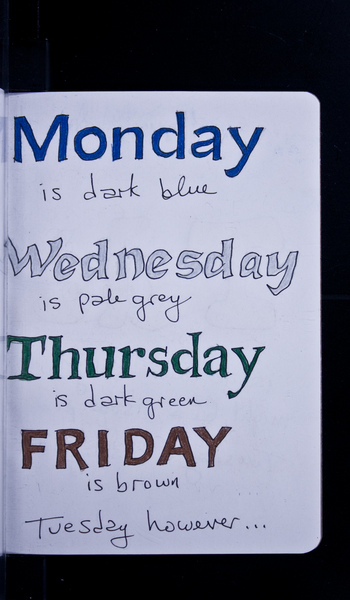 Monday
is dark blue
Wednesday
is pale grey
Thursday
is dark green
FRIDAY
is brown
Tuesday however...